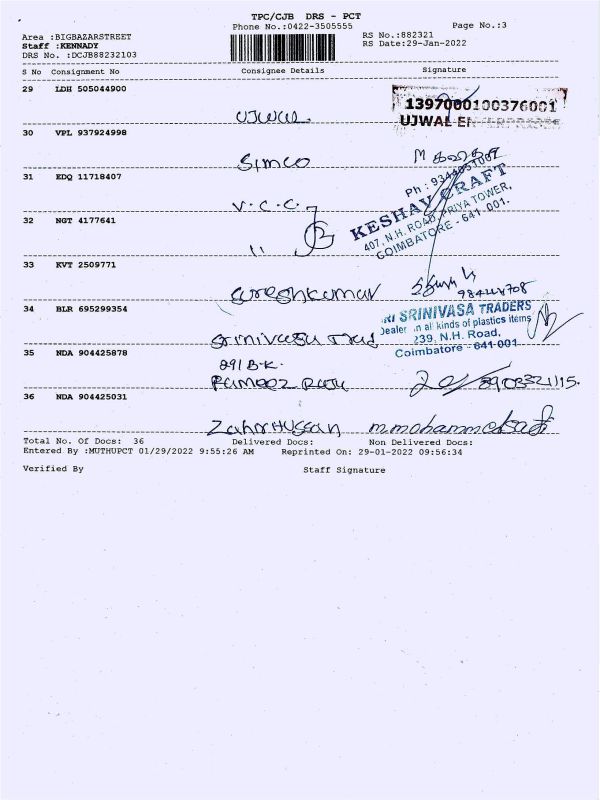 TPC/CJB DRS - PCT
Phone No.:0422-3505555
Page No.:3
Area :BIGBAZARSTREET
RS No.:882321
Staff :KENNADY
RS Date:29-Jan-2022
DRS No. :DCJB88232103
S No Consignment No Consignee Details Signature
29 LDH 505044900
1397000100376001
UJWAL
30 VPL 937924998
Simco
31 EDQ 11718407
V.C.C.
KESHAV CRAFT
407, N.H. ROAD, PRIYA TOWER,
COIMBATORE - 641 001.
32 NGT 4177641
"
33 KVT 2509771
Sureshkumar
34 BLR 695299354
Srinivasa Trad
RI SRINIVASA TRADERS
Dealer in all kinds of plastics items
239, N.H. Road,
Coimbatore - 641 001
35 NDA 904425878
291 B.K.
Rameez Raja
36 NDA 904425031
Zahir Hussan
Total No. Of Docs: 36 Delivered Docs: Non Delivered Docs:
Entered By :MUTHUPCT 01/29/2022 9:55:26 AM Reprinted On: 29-01-2022 09:56:34
Verified By Staff Signature